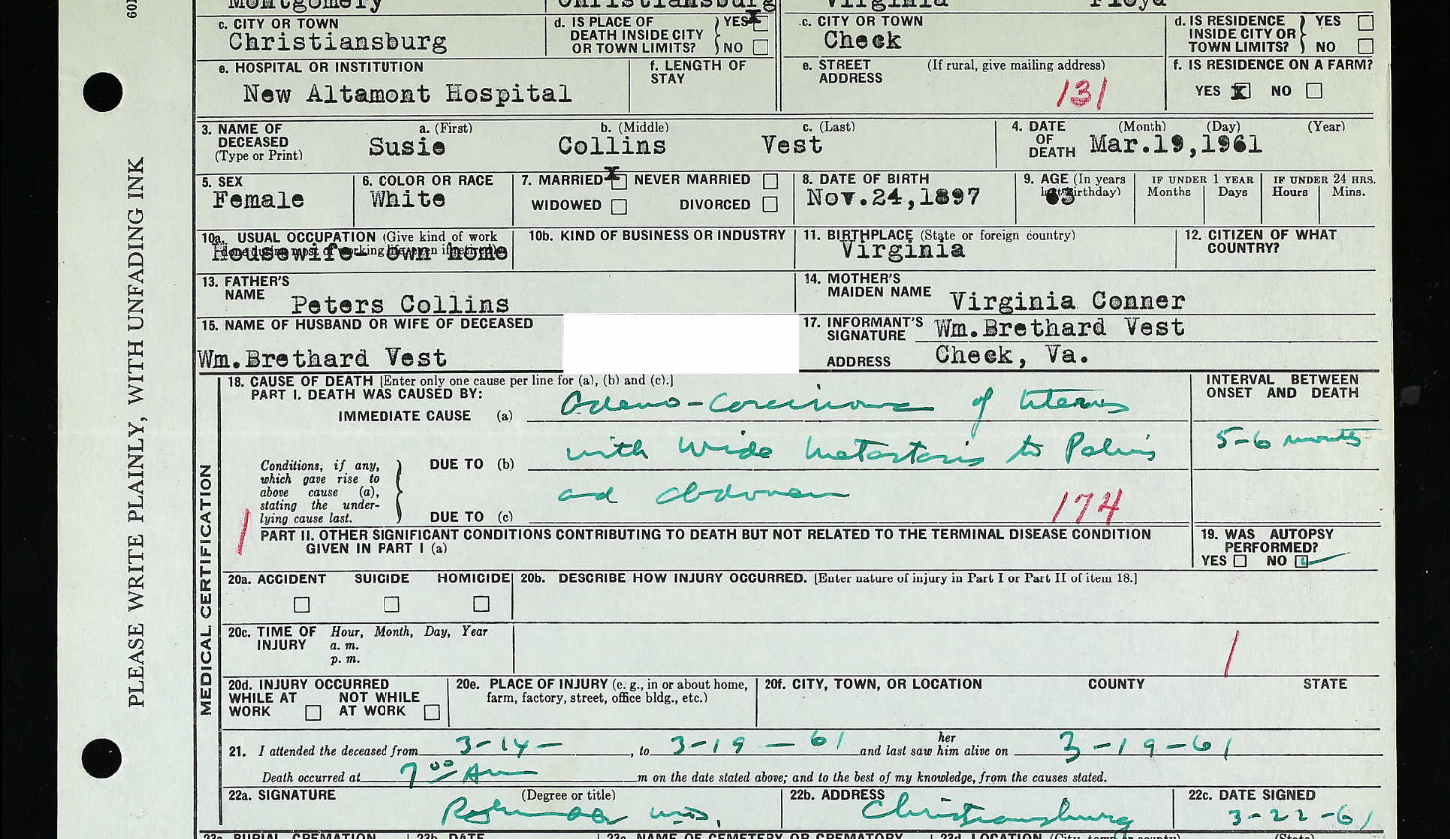 Montgomery Christiansburg Virginia Floyd
c. CITY OR TOWN
Christiansburg
d. IS PLACE OF DEATH INSIDE CITY OR TOWN LIMITS? YES X NO
c. CITY OR TOWN
Check
d. IS RESIDENCE INSIDE CITY OR TOWN LIMITS? YES NO
e. HOSPITAL OR INSTITUTION
New Altamont Hospital
f. LENGTH OF STAY
e. STREET ADDRESS (If rural, give mailing address)
131
f. IS RESIDENCE ON A FARM?
YES X NO
3. NAME OF DECEASED (Type or Print)
a. (First) b. (Middle) c. (Last)
Susie Collins Vest
4. DATE OF DEATH (Month) (Day) (Year)
Mar.19,1961
5. SEX
Female
6. COLOR OR RACE
White
7. MARRIED X NEVER MARRIED
WIDOWED DIVORCED
8. DATE OF BIRTH
Nov.24,1897
9. AGE (In years last birthday)
63
IF UNDER 1 YEAR
Months Days
IF UNDER 24 HRS.
Hours Mins.
10a. USUAL OCCUPATION (Give kind of work
Housewife- own home
10b. KIND OF BUSINESS OR INDUSTRY
11. BIRTHPLACE (State or foreign country)
Virginia
12. CITIZEN OF WHAT COUNTRY?
13. FATHER'S NAME
Peters Collins
14. MOTHER'S MAIDEN NAME
Virginia Conner
15. NAME OF HUSBAND OR WIFE OF DECEASED
Wm.Brethard Vest
17. INFORMANT'S SIGNATURE Wm.Brethard Vest
ADDRESS Check, Va.
PLEASE WRITE PLAINLY, WITH UNFADING INK
MEDICAL CERTIFICATION
18. CAUSE OF DEATH [Enter only one cause per line for (a), (b) and (c).]
PART I. DEATH WAS CAUSED BY:
INTERVAL BETWEEN ONSET AND DEATH
IMMEDIATE CAUSE (a) Adeno-Carcinoma of Uterus
Conditions, if any, which gave rise to above cause (a), stating the underlying cause last.
DUE TO (b) with wide metastasis to Pelvis
5-6 months
DUE TO (c) and abdomen
174
1
PART II. OTHER SIGNIFICANT CONDITIONS CONTRIBUTING TO DEATH BUT NOT RELATED TO THE TERMINAL DISEASE CONDITION GIVEN IN PART I (a)
19. WAS AUTOPSY PERFORMED?
YES NO
20a. ACCIDENT SUICIDE HOMICIDE
20b. DESCRIBE HOW INJURY OCCURRED. [Enter nature of injury in Part I or Part II of item 18.]
20c. TIME OF INJURY Hour, Month, Day, Year
a. m.
p. m.
1
20d. INJURY OCCURRED
WHILE AT WORK NOT WHILE AT WORK
20e. PLACE OF INJURY (e. g., in or about home, farm, factory, street, office bldg., etc.)
20f. CITY, TOWN, OR LOCATION COUNTY STATE
21. I attended the deceased from 3-14- , to 3-19-61 and last saw her him alive on 3-19-61
Death occurred at 7 00 Am m on the date stated above; and to the best of my knowledge, from the causes stated.
22a. SIGNATURE (Degree or title)
22b. ADDRESS
Christiansburg
22c. DATE SIGNED
3-22-61
23a. BURIAL, CREMATION 23b. DATE 23c. NAME OF CEMETERY OR CREMATORY 23d. LOCATION (City, town, or county) (State)